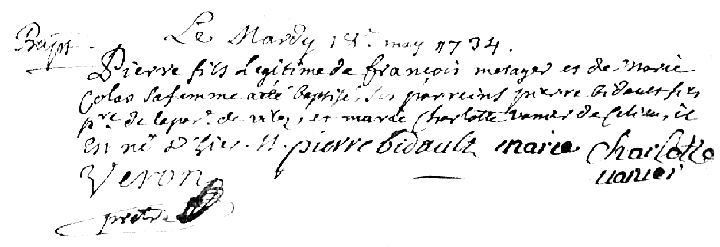 Bapt. Le Mardy 18e may 1734.
Pierre fils Legitime de françois metayer et de marie
Colas sa femme a été baptisé, ses parreins pierre bidault
pre. de la par. de et marie Charlotte vanier de Celieu, il
est né d'hier. pierre bidault marie Charlotte
Veron vanier
pretre